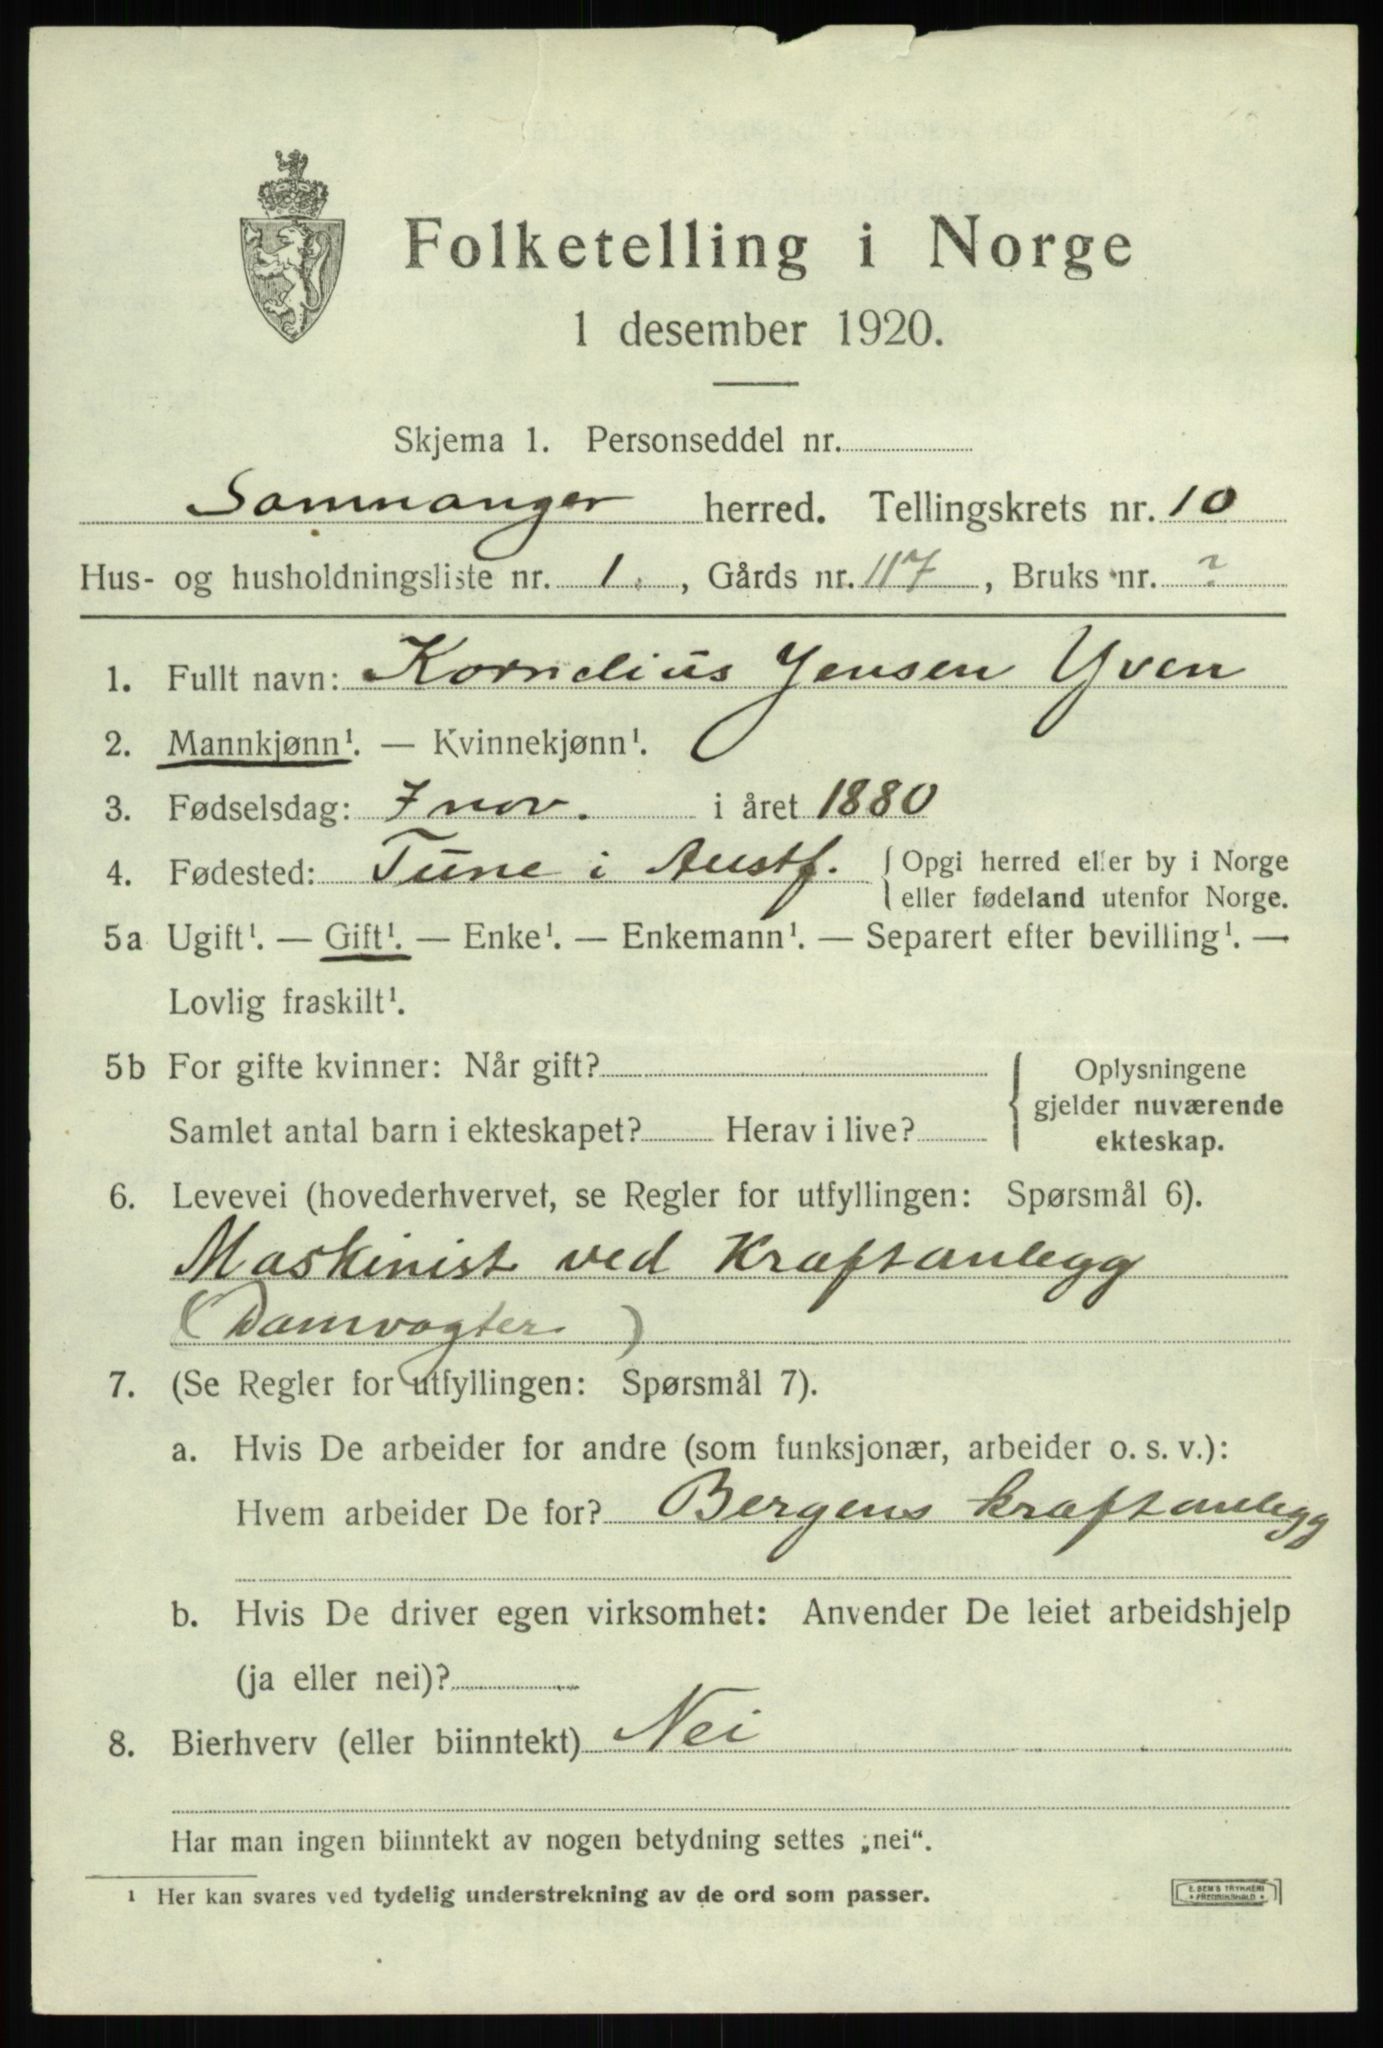 Folketelling i Norge
1 desember 1920.
Skjema 1. Personseddel nr.
Samnanger herred. Tellingskrets nr. 10
Hus- og husholdningsliste nr. 1. , Gårds nr. 117 , Bruks nr. ?
1. Fullt navn: Kornelius Jensen Yven
2. Mannkjønn¹. — Kvinnekjønn¹.
3. Fødselsdag: 7 nov. i året 1880
4. Fødested: Tune i Austf. { Opgi herred eller by i Norge
eller fødeland utenfor Norge.
5a Ugift¹. — Gift¹. — Enke¹. — Enkemann¹. — Separert efter bevilling¹. —
Lovlig fraskilt¹.
5b For gifte kvinner: Når gift? { Oplysningene
gjelder nuværende
Samlet antal barn i ekteskapet? Herav i live?
ekteskap.
6. Levevei (hovederhvervet, se Regler for utfyllingen: Spørsmål 6).
Maskinist ved Kraftanlegg
(Damvogter)
7. (Se Regler for utfyllingen: Spørsmål 7).
a. Hvis De arbeider for andre (som funksjonær, arbeider o. s. v.):
Hvem arbeider De for? Bergens kraftanlegg
b. Hvis De driver egen virksomhet: Anvender De leiet arbeidshjelp
(ja eller nei)?
8. Bierhverv (eller biinntekt) Nei
Har man ingen biinntekt av nogen betydning settes „nei“.
¹ Her kan svares ved tydelig understrekning av de ord som passer.
E. SEM'S TRYKKERI
• FREDRIKSHALD •